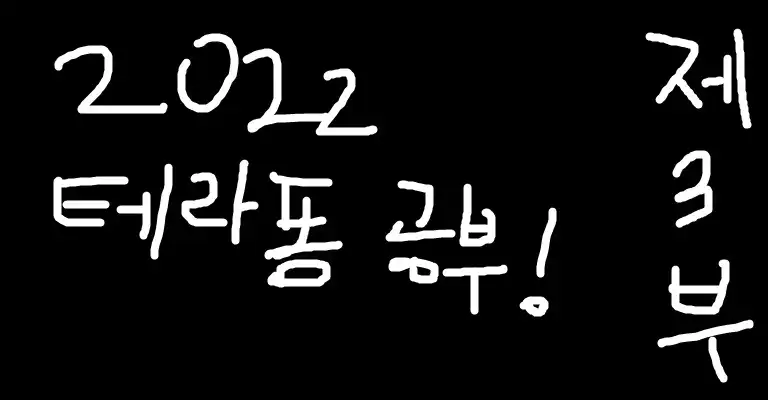 2022
테라폼 공부!
제
3
부